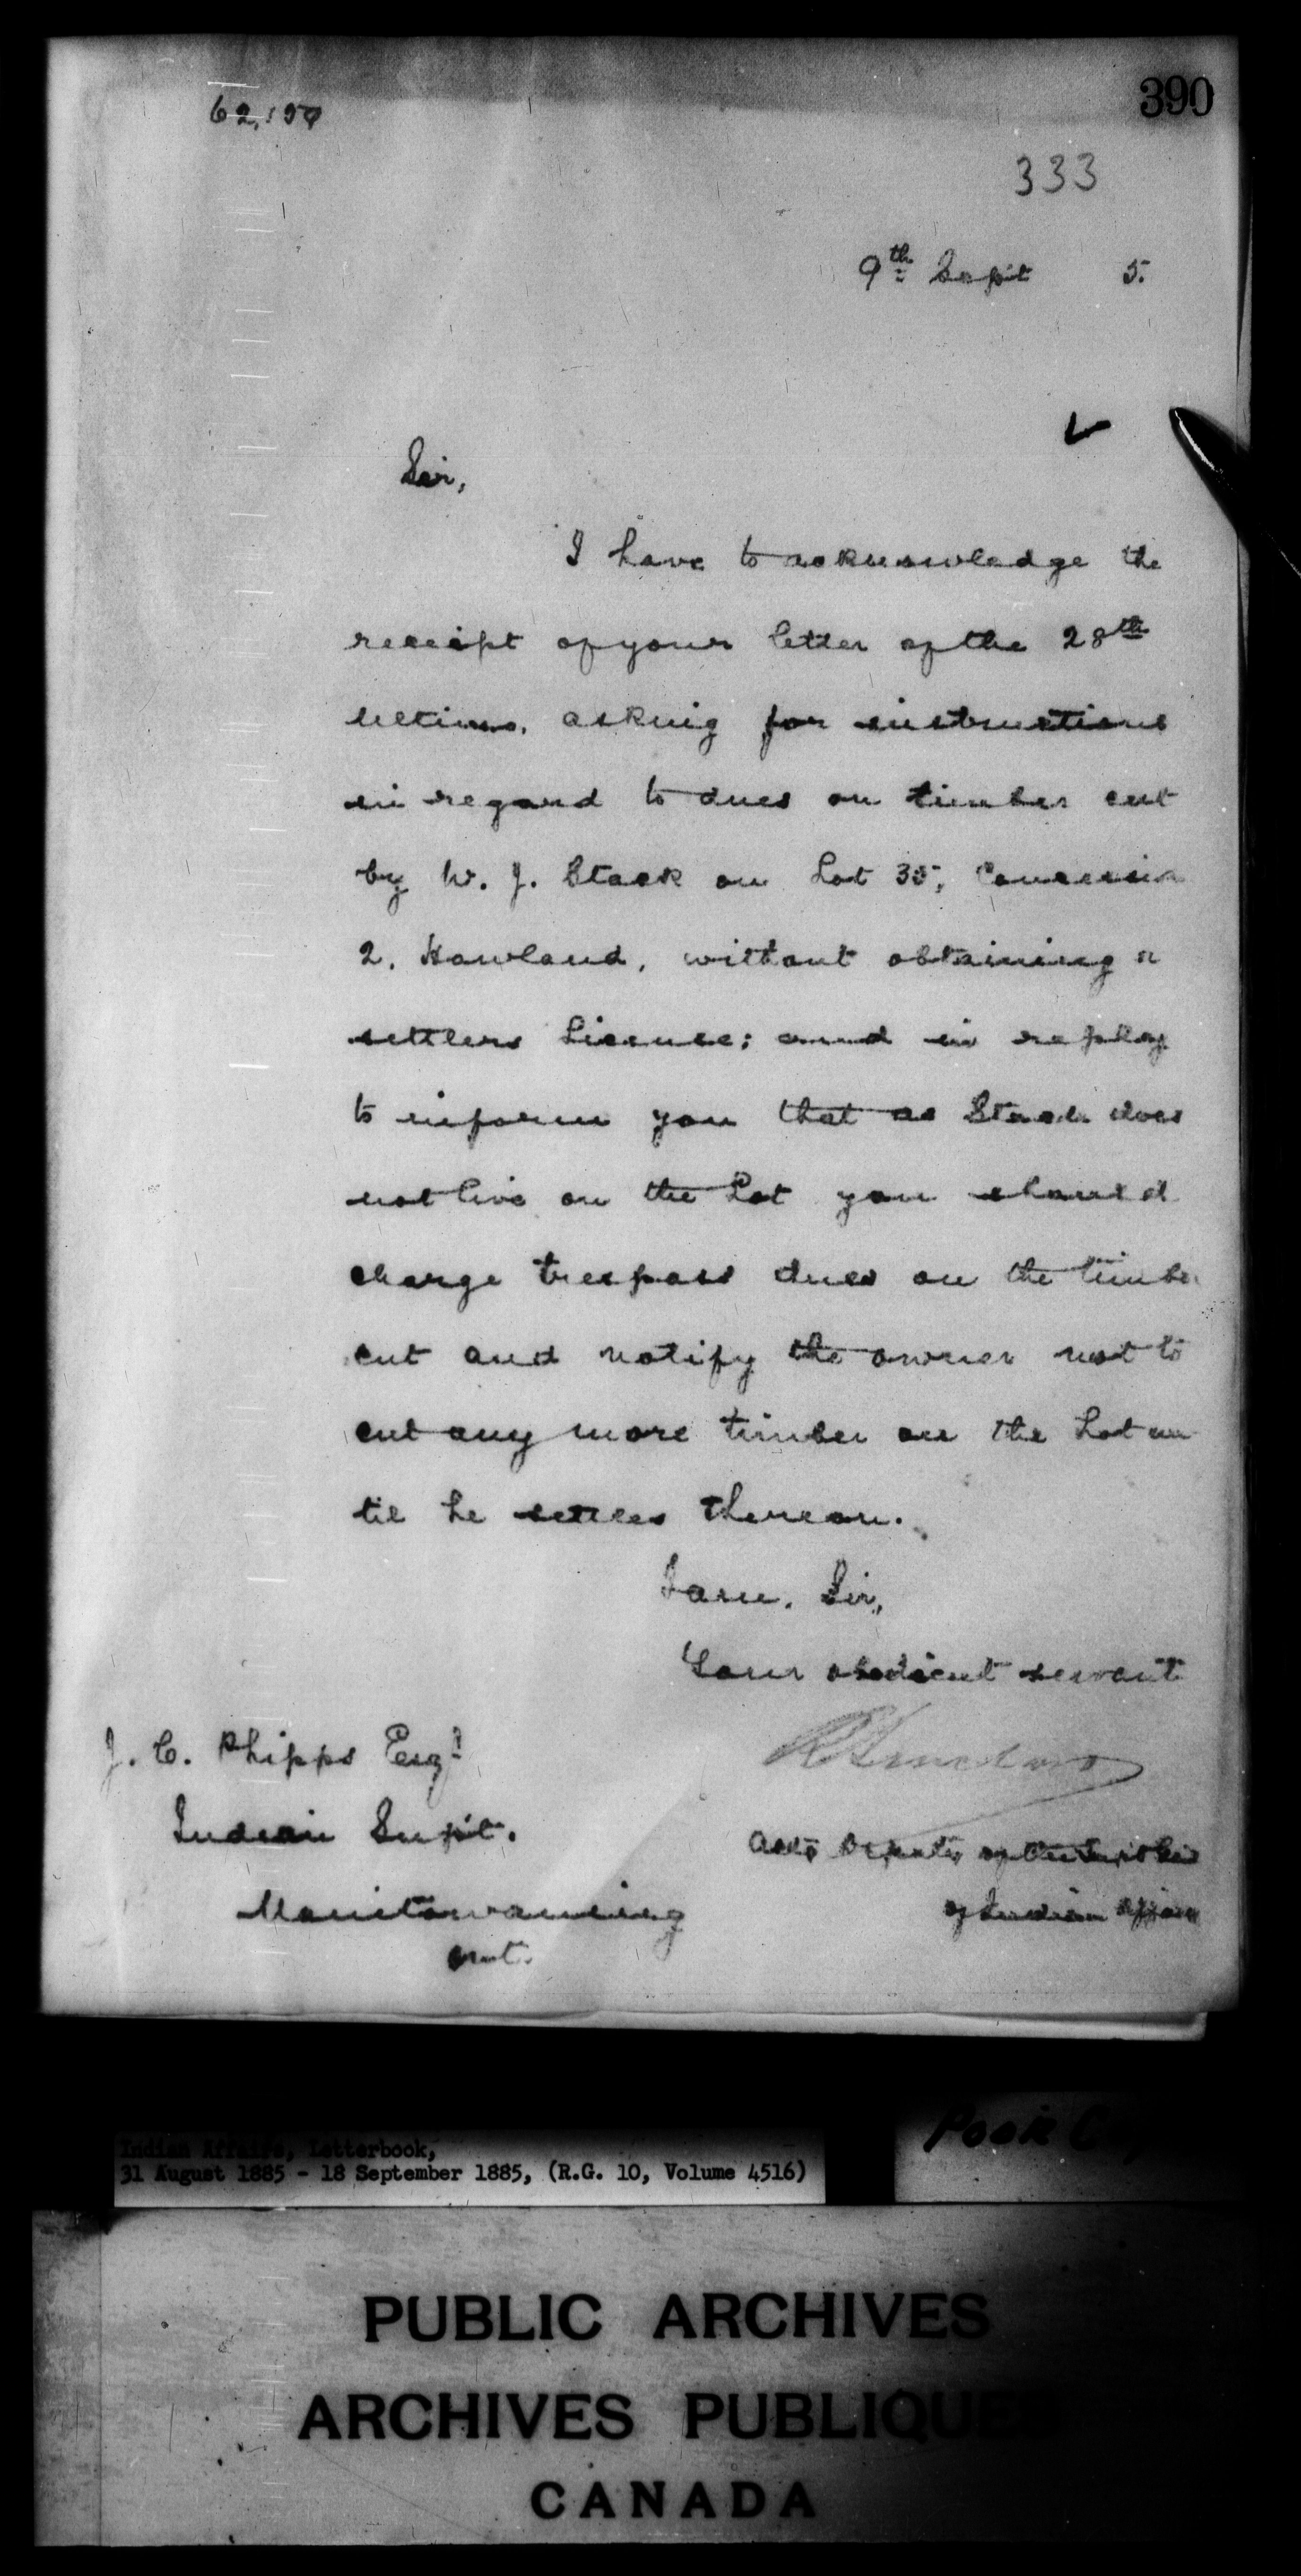 390
62,159
333
9th Sept 5.
Sir,
I have to acknowledge the
receipt of your letter of the 28th
ultimo, asking for instructions
in regard to dues on timber cut
by W. J. Stack on Lot 35, Concession
2, Howland, without obtaining a
settlers License; and in reply
to inform you that as Stack does
not live on the Lot you should
charge trespass dues on the timber
cut and notify the owner not to
cut any more timber on the Lot un
til he settles thereon.
I am, Sir,
Your obedient servant
J. C. Phipps Esqr
Indian Supt.
Manitowaning
Ont.
Actg Deputy of the Supt Gen
of Indian Affairs
Poor
Indian Affairs, Letterbook,
31 August 1885 - 18 September 1885, (R.G. 10, Volume 4516)
PUBLIC ARCHIVES
ARCHIVES PUBLIQUES
CANADA